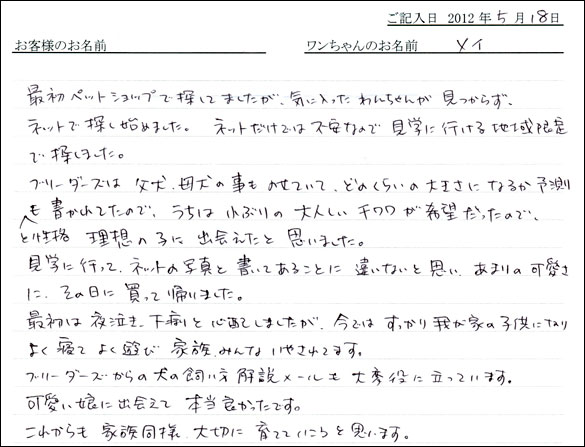 ご記入日 2012年5月18日
お客様のお名前 ワンちゃんのお名前 メイ
最初ペットショップで探してましたが、気に入ったわんちゃんが見つからず、
ネットで探し始めました。 ネットだけでは不安なので見学に行ける地域限定
で探しました。
ブリーダーズは父犬、母犬の事ものせていて、どのくらいの大きさになるか予測
も書かれてたので、うちは小ぶりの大人しいチワワが希望だったので、
と性格 理想の子に出会えたと思いました。
見学に行って、ネットの写真と書いてあることに違いないと思い、あまりの可愛さ
に、その日に買って帰りました。
最初は夜泣き、下痢と心配でしましたが、今ではすっかり我が家の子供になり
よく寝てよく遊び家族みんないやされてます。
ブリーダーズからの犬の飼い方解説メールも大変役に立っています。
可愛い娘に出会えて本当良かったです。
これからも家族同様、大切に育てていこうと思います。